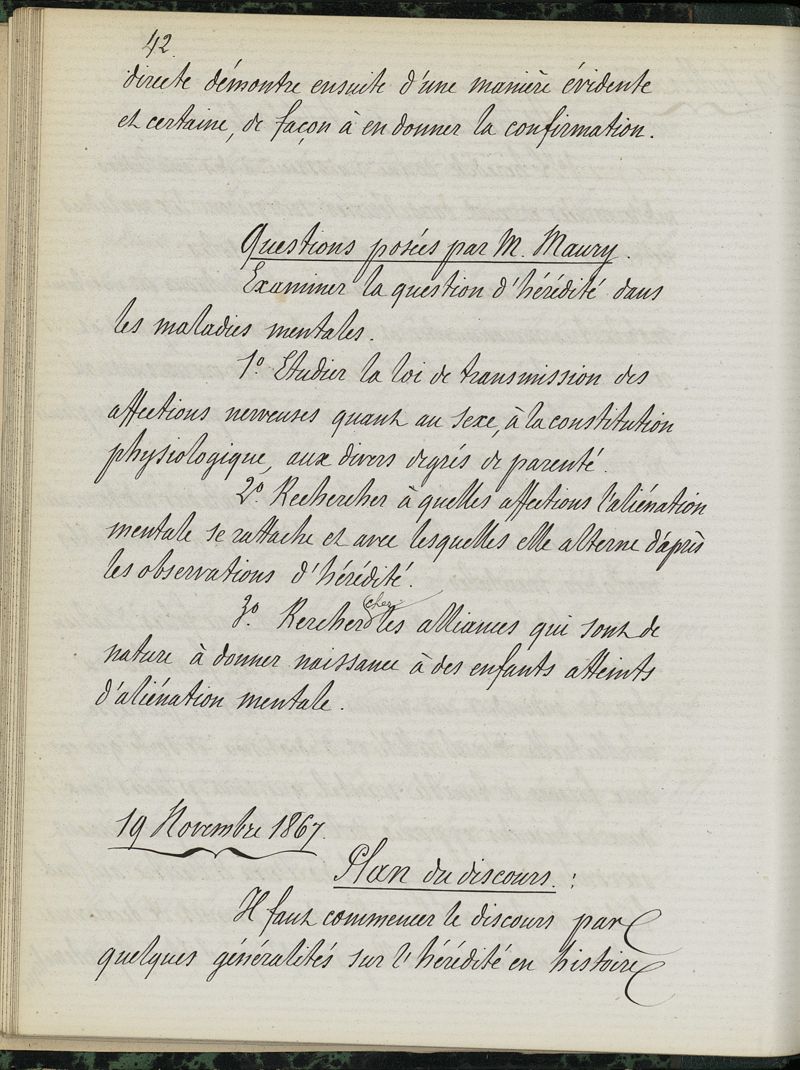 42
directe démontre ensuite d'une manière évidente
et certaine, de façon à en donner la confirmation.
Questions posées par M. Maury.
Examiner la question d'hérédité dans
les maladies mentales.
1º Etudier la loi de transmission des
affections nerveuses quant au sexe, à la constitution
physiologique, aux divers degrés de parenté.
2º. Rechercher à quelles affections l'aliénation
mentale se rattache et avec lesquelles elle alterne d'après
les observations d'hérédité.
cher
3º. Rercher les alliances qui sont de
nature à donner naissance à des enfants atteints
d'aliénation mentale.
19 Novembre 1867.
Plan du discours. :
Il faut commencer le discours par
quelques généralités sur l'hérédité en histoire